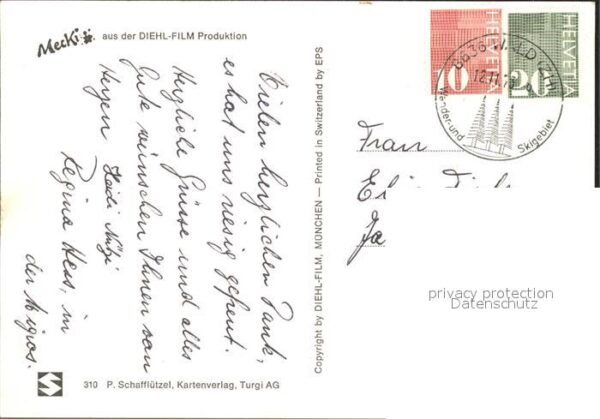 Mecki aus der DIEHL-FILM Produktion
Vielen herzlichen Dank,
es hat uns riesig gefreut.
Herzliche Grüsse und alles
Gute wünschen Ihnen von
Herzen Heidi
Regina Hess, in
der Migros.
310 P. Schafflützel, Kartenverlag, Turgi AG
Copyright by DIEHL-FILM, MÜNCHEN — Printed in Switzerland by EPS
HELVETIA
10
HELVETIA
20
8636 WALD (ZH)
12.11.
Wander-und Skigebiet
Frau
privacy protection
Datenschutz